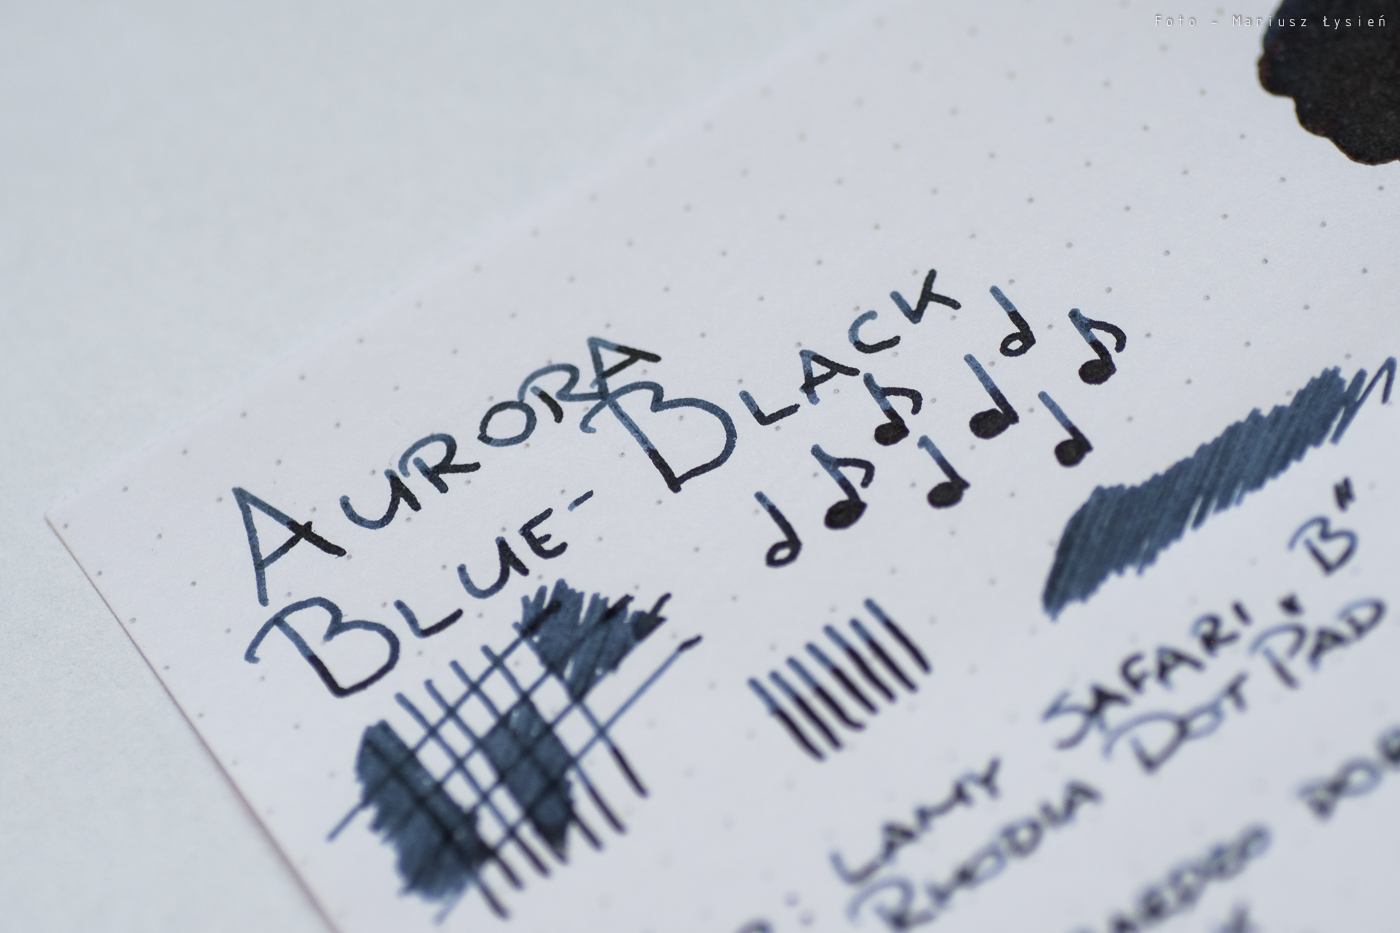 Foto - Mariusz Łysień
AURORA
BLUE-BLACK
LAMY SAFARI "B"
RHODIA DOT PAD
BARDZO DOB